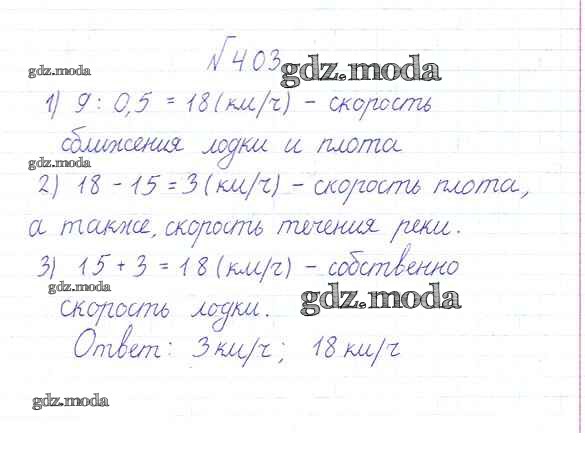 №403
gdz.moda
gdz.moda
1) 9 : 0,5 = 18 (км/ч) - скорость
сближения лодки и плота
gdz.moda
2) 18 - 15 = 3 (км/ч) - скорость плота,
а также, скорость течения реки.
3) 15 + 3 = 18 (км/ч) - собственно
gdz.moda
скорость лодки.
gdz.moda
Ответ: 3 км/ч; 18 км/ч
gdz.moda